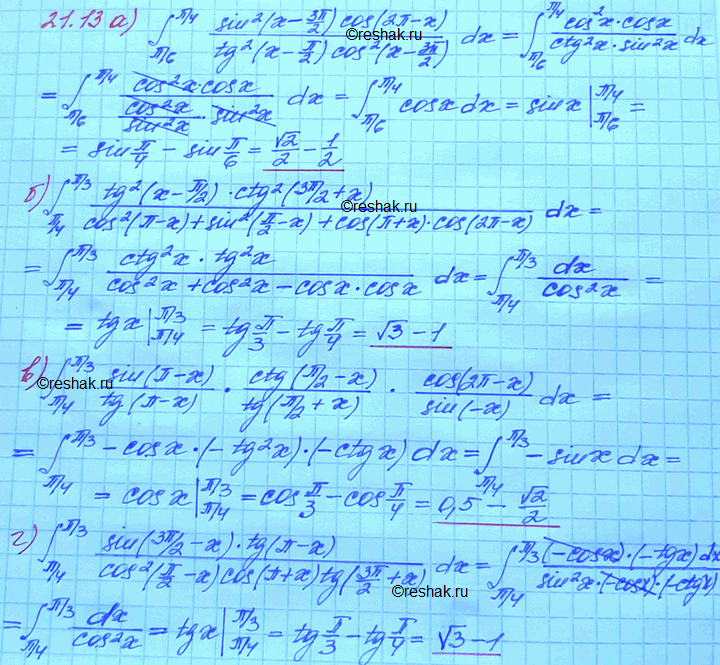 21.13 а) ∫_{π/6}^{π/4} sin²(x-3π/2) cos(2π-x) / tg²(x-π/2) cos²(x-3π/2) dx = ∫_{π/6}^{π/4} cos²x·cosx / ctg²x·sin²x dx
©reshak.ru
= ∫_{π/6}^{π/4} cos²x·cosx / (cos²x/sin²x · sin²x) dx = ∫_{π/6}^{π/4} cosx dx = sinx |_{π/6}^{π/4} =
= sin π/4 - sin π/6 = √2/2 - 1/2
б) ∫_{π/4}^{π/3} tg²(x-π/2)·ctg²(3π/2+x) / cos²(π-x)+sin²(π/2-x)+cos(π+x)·cos(2π-x) dx =
©reshak.ru
= ∫_{π/4}^{π/3} ctg²x·tg²x / cos²x+cos²x-cosx·cosx dx = ∫_{π/4}^{π/3} dx / cos²x =
= tgx |_{π/4}^{π/3} = tg π/3 - tg π/4 = √3 - 1
в) ∫_{π/4}^{π/3} sin(π-x) / tg(π-x) · ctg(π/2-x) / tg(π/2+x) · cos(2π-x) / sin(-x) dx =
©reshak.ru
= ∫_{π/4}^{π/3} -cosx·(-tg²x)·(-ctgx) dx = ∫_{π/4}^{π/3} -sinx dx =
= cosx |_{π/4}^{π/3} = cos π/3 - cos π/4 = 0,5 - √2/2
г) ∫_{π/4}^{π/3} sin(3π/2-x)·tg(π-x) / cos²(π/2-x)cos(π+x)tg(3π/2+x) dx = ∫_{π/4}^{π/3} (-cosx)·(-tgx)dx / sin²x·(-cosx)·(-ctgx)
©reshak.ru
= ∫_{π/4}^{π/3} dx / cos²x = tgx |_{π/4}^{π/3} = tg π/3 - tg π/4 = √3 - 1